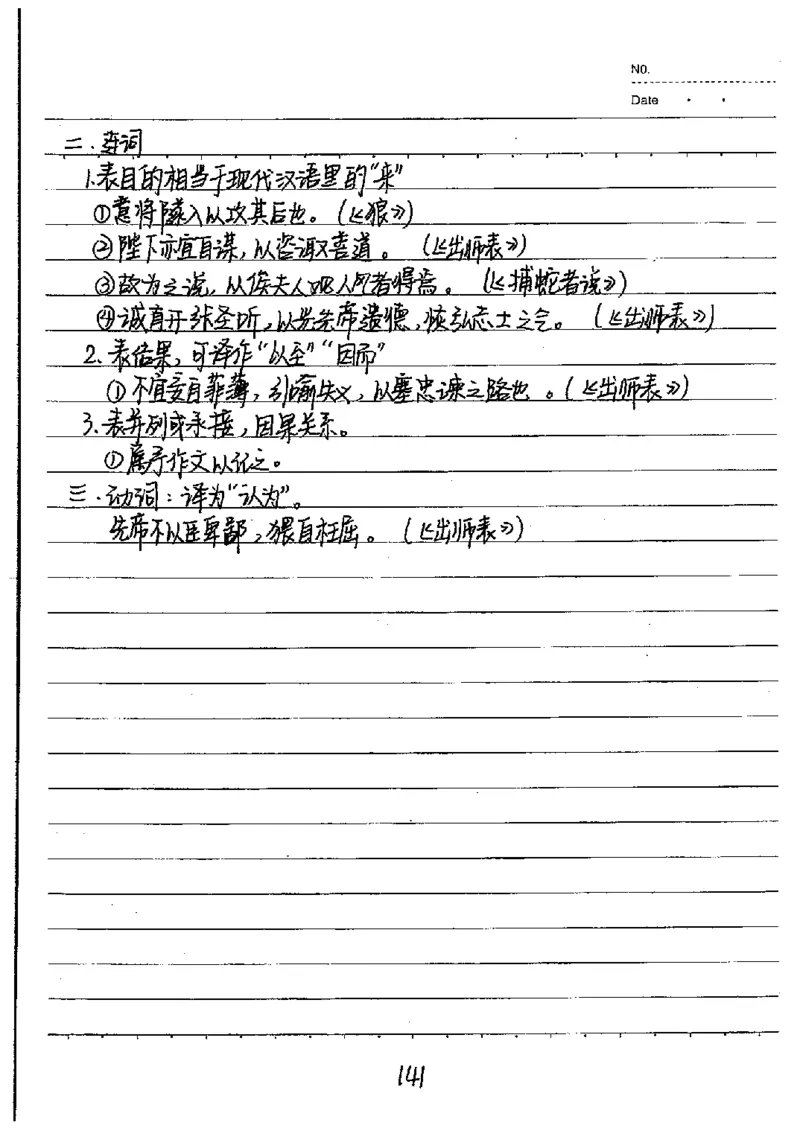 NO.
Date
二.连词
1.表目的相当于现代汉语里的"来"
①意将隧入以攻其后也。(《狼》)
②陛下亦宜自谋,以咨诹善道。(《出师表》)
③故为之说,以俟夫人观人风者得焉。(《捕蛇者说》)
④诚宜开张圣听,以光先帝遗德,恢弘志士之气。(《出师表》)
2.表结果,可译作"以至""因而"
①不宜妄自菲薄,引喻失义,以塞忠谏之路也。(《出师表》)
3.表并列或承接,因果关系。
①属予作文以记之。
三.动词:译为"认为"。
先帝不以臣卑鄙,猥自枉屈。(《出师表》)
141